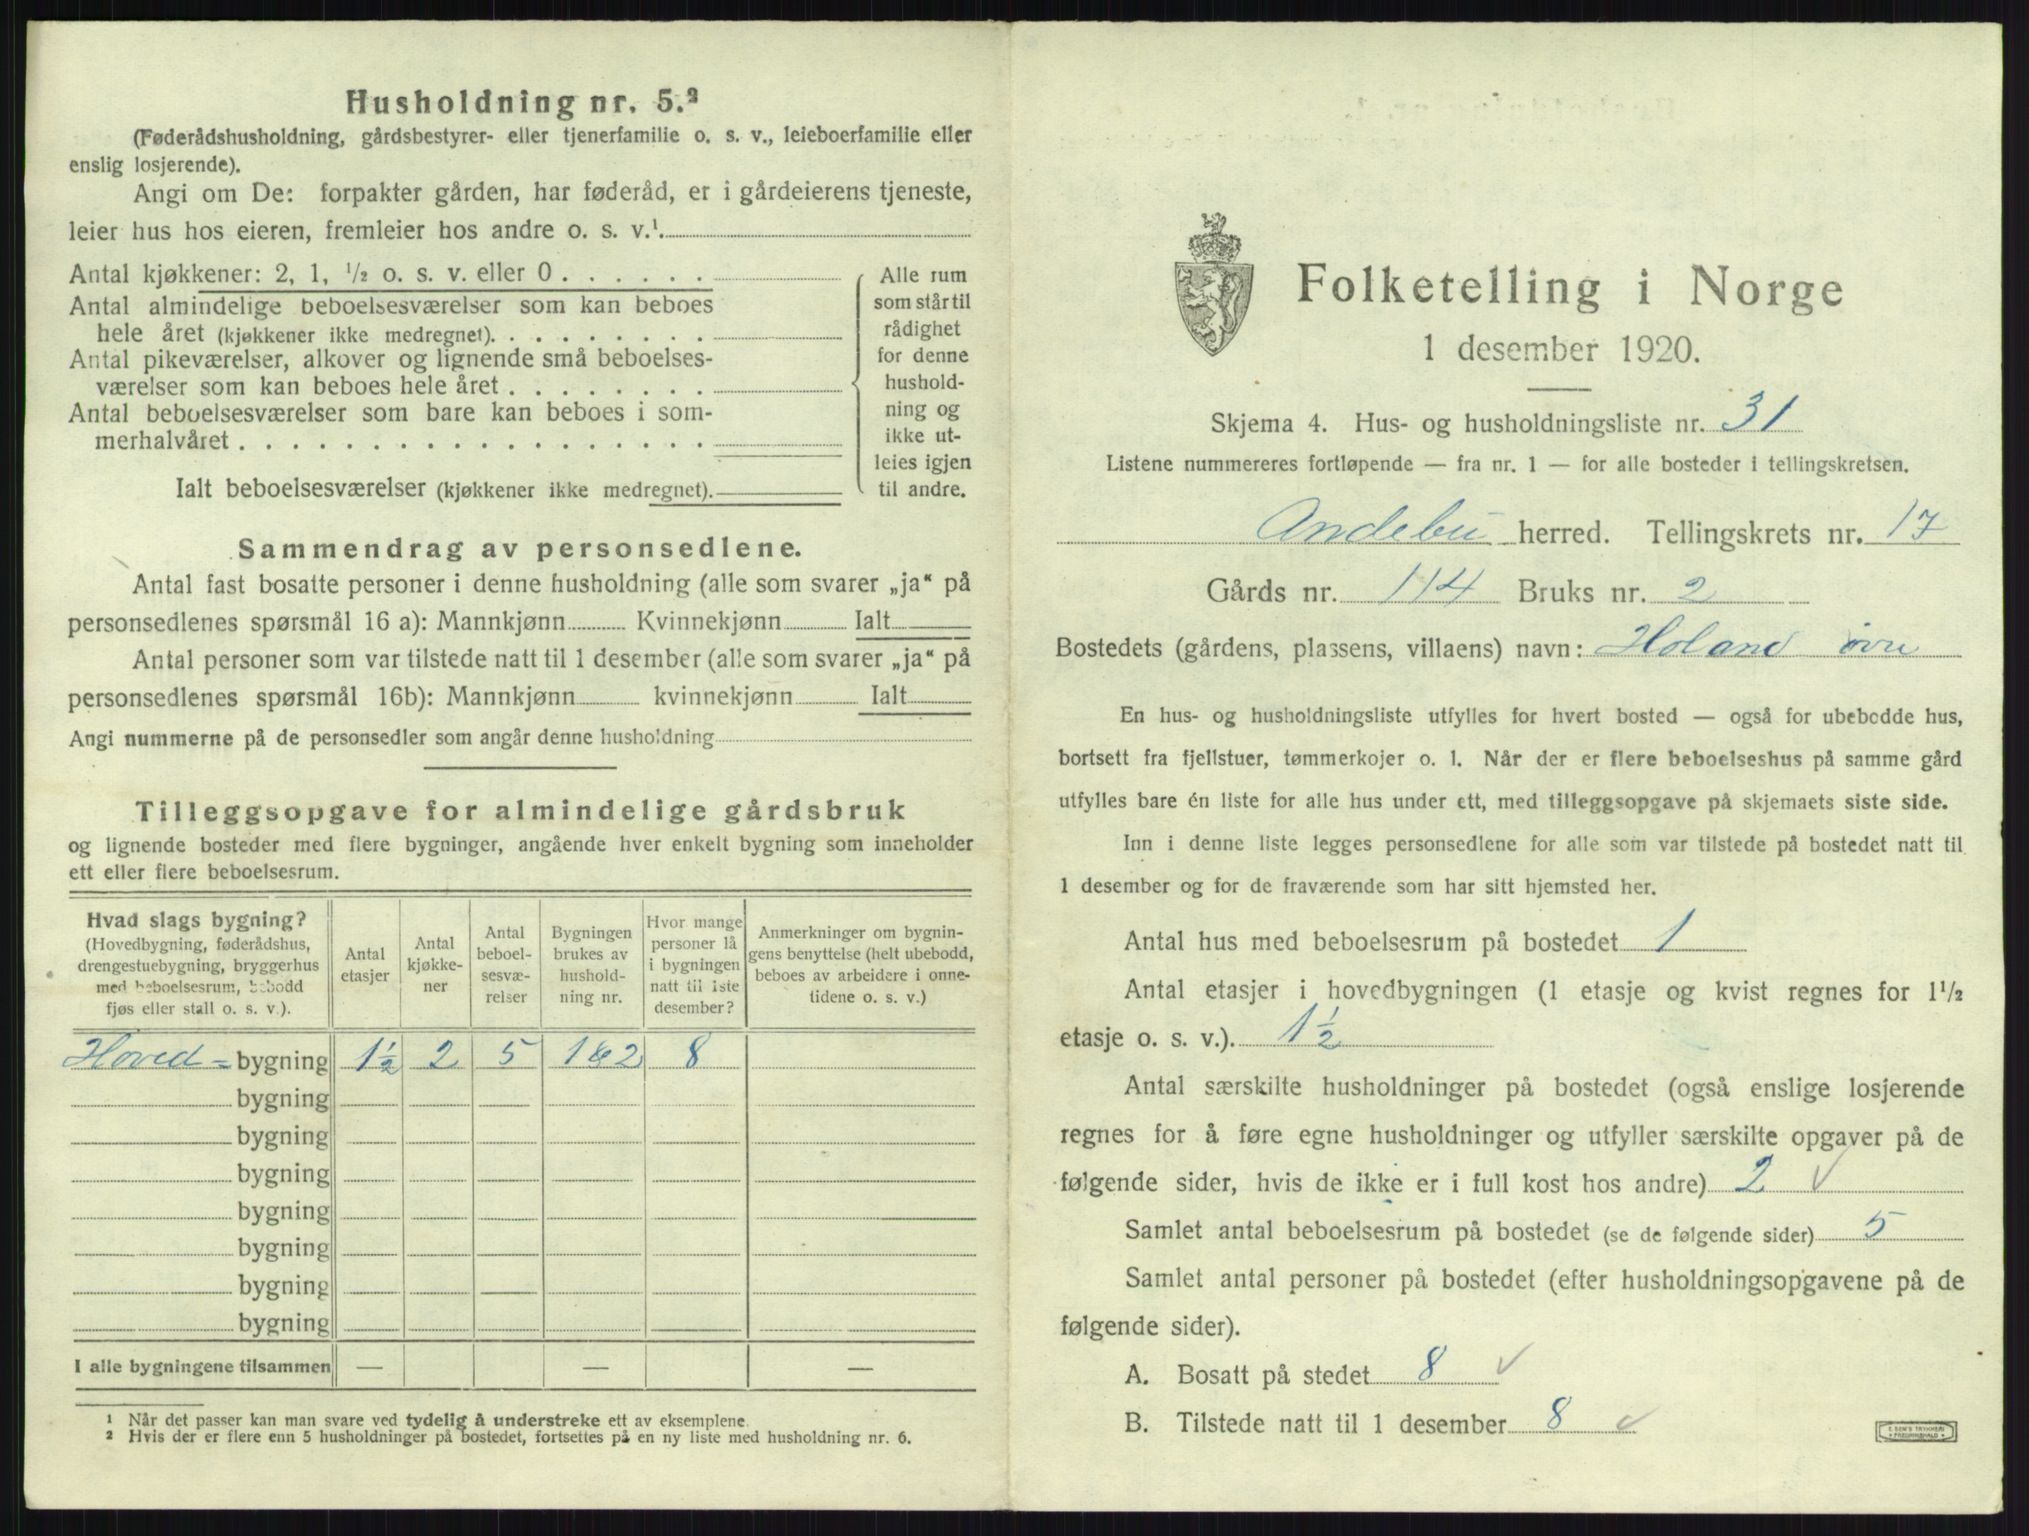 Husholdning nr. 5.²
(Føderådshusholdning, gårdsbestyrer- eller tjenerfamilie o. s. v., leieboerfamilie eller
enslig losjerende).
Angi om De: forpakter gården, har føderåd, er i gårdeierens tjeneste,
leier hus hos eieren, fremleier hos andre o. s. v.¹
Antal kjøkkener: 2, 1, ½ o. s. v. eller 0 . . . . . .
Antal almindelige beboelsesværelser som kan beboes
hele året (kjøkkener ikke medregnet). . . . . . . . .
Antal pikeværelser, alkover og lignende små beboelses-
værelser som kan beboes hele året . . . . . . . .
Antal beboelsesværelser som bare kan beboes i som-
merhalvåret . . . . . . . . . . . . . . . . . .
Ialt beboelsesværelser (kjøkkener ikke medregnet).
Alle rum
som står til
rådighet
for denne
hushold-
ning og
ikke ut-
leies igjen
til andre.
Sammendrag av personsedlene.
Antal fast bosatte personer i denne husholdning (alle som svarer „ja“ på
personsedlenes spørsmål 16 a): Mannkjønn Kvinnekjønn Ialt
Antal personer som var tilstede natt til 1 desember (alle som svarer „ja“ på
personsedlenes spørsmål 16b): Mannkjønn kvinnekjønn Ialt
Angi nummerne på de personsedler som angår denne husholdning
Tilleggsopgave for almindelige gårdsbruk
og lignende bosteder med flere bygninger, angående hver enkelt bygning som inneholder
ett eller flere beboelsesrum.
Hvad slags bygning?
(Hovedbygning, føderådshus,
drengestuebygning, bryggerhus
med beboelsesrum, bebodd
fjøs eller stall o. s. v.).
Antal
etasjer
Antal
kjøkke-
ner
Antal
beboel-
sesvæ-
relser
Bygningen
brukes av
hushold-
ning nr.
Hvor mange
personer lå
i bygningen
natt til 1ste
desember?
Anmerkninger om bygnin-
gens benyttelse (helt ubebodd,
beboes av arbeidere i onne-
tidene o. s. v.)
Hoved- bygning 1½ 2 5 1&2 8
bygning
bygning
bygning
bygning
bygning
bygning
bygning
I alle bygningene tilsammen — — —
¹ Når det passer kan man svare ved tydelig å understreke ett av eksemplene.
² Hvis der er flere enn 5 husholdninger på bostedet, fortsettes på en ny liste med husholdning nr. 6.
Folketelling i Norge
1 desember 1920.
Skjema 4. Hus- og husholdningsliste nr. 31
Listene nummereres fortløpende — fra nr. 1 — for alle bosteder i tellingskretsen.
Andebu herred. Tellingskrets nr. 17
Gårds nr. 114 Bruks nr. 2
Bostedets (gårdens, plassens, villaens) navn: Holand øvre
En hus- og husholdningsliste utfylles for hvert bosted — også for ubebodde hus,
bortsett fra fjellstuer, tømmerkojer o. l. Når der er flere beboelseshus på samme gård
utfylles bare én liste for alle hus under ett, med tilleggsopgave på skjemaets siste side.
Inn i denne liste legges personsedlene for alle som var tilstede på bostedet natt til
1 desember og for de fraværende som har sitt hjemsted her.
Antal hus med beboelsesrum på bostedet 1
Antal etasjer i hovedbygningen (1 etasje og kvist regnes for 1½
etasje o. s. v.). 1½
Antal særskilte husholdninger på bostedet (også enslige losjerende
regnes for å føre egne husholdninger og utfyller særskilte opgaver på de
følgende sider, hvis de ikke er i full kost hos andre) 2 ✓
Samlet antal beboelsesrum på bostedet (se de følgende sider) 5
Samlet antal personer på bostedet (efter husholdningsopgavene på de
følgende sider).
A. Bosatt på stedet 8 ✓
B. Tilstede natt til 1 desember 8 ✓